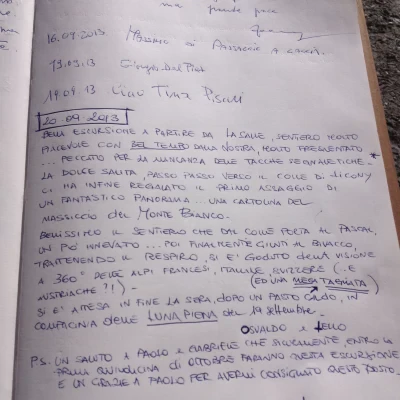 ma
16.09.2013. MASSIMO DI PASSAGGIO A CAVAL
19.09.13 Giorgio Dal Prat
19.09.13 Lino Tina
20.09.2013
BELLA ESCURSIONE A PARTIRE DA LA SALLE, SENTIERO MOLTO
PIACEVOLE CON BEL TEMPO DALLA NOSTRA, MOLTO FREQUENTATO
... PECCATO PER LA MANCANZA DELLE TACCHE SEGNALETICHE. *
LA DOLCE SALITA, PASSO PASSO VERSO IL COLLE DI LICONY
CI HA INFINE REGALATO IL PRIMO ASSAGGIO DI
UN FANTASTICO PANORAMA ... UNA CARTOLINA DEL
MASSICCIO del MONTE BIANCO.
BELLISSIMO IL SENTIERO CHE DAL COLLE PORTA AL PASCAL,
UN PO' INNEVATO ... POI FINALMENTE GIUNTI AL BIVACCO,
TRATTENENDO IL RESPIRO, SI E' GODUTO DELLA VISIONE
A 360° DELLE ALPI FRANCESI, ITALIANE, SVIZZERE (.. E
AUSTRIACHE ?!) - (ED UNA MEGA TAGLIATA)
SI E' ATTESA IN FINE LA SERA, DOPO UN PASTO CALDO, IN
COMPAGNIA della LUNA PIENA del 19 settembre.
OSVALDO e LELLO
P.S. UN SALUTO A PAOLO E GABRIELE CHE SICURAMENTE, ENTRO LA
PRIMA QUINDICINA DI OTTOBRE FARANNO QUESTA ESCURSIONE
E UN GRAZIE A PAOLO PER AVERMI CONSIGLIATO QUESTO POSTO.